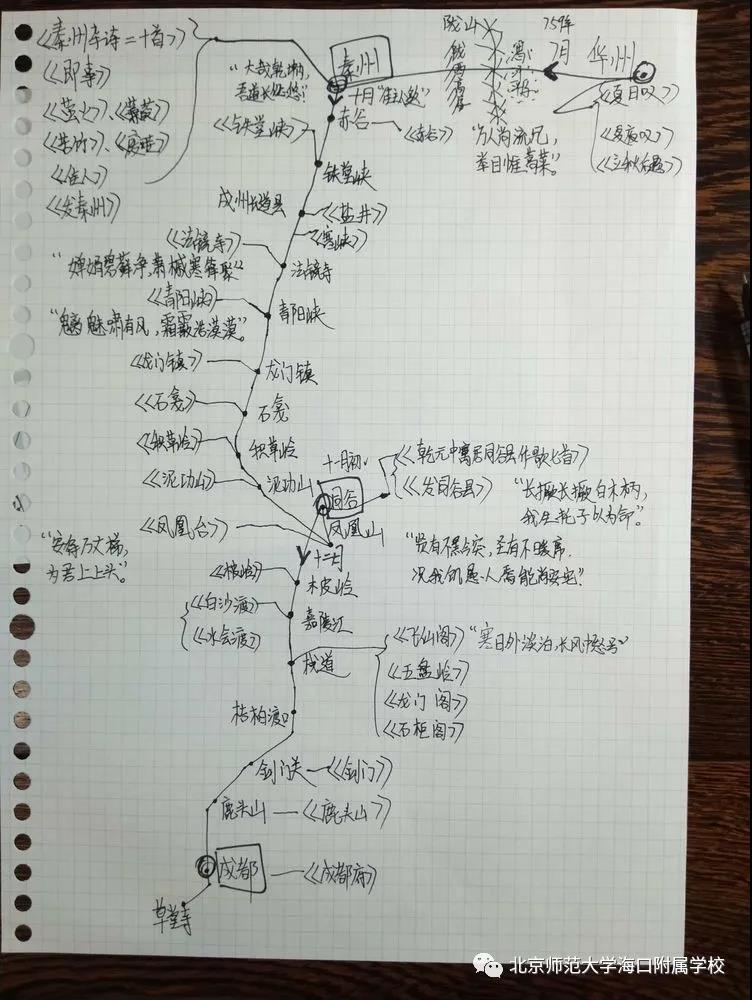 陇山
759年
7月
华州
秦州
《秦州杂诗二十首》
《即事》
《萤火》、《蒹葭》
《苦竹》、《夜听》
《佳人》
《发秦州》
“大哉乾坤内,
吾道长悠悠!”
十月
《夏日叹》
《夏夜叹》
《立秋后题》
赤谷
《赤谷》
《铁堂峡》
铁堂峡
成州长道县
《盐井》
《寒峡》
《法镜寺》
法镜寺
“婵娟碧藓净,萧槭寒箨聚”
《青阳峡》
青阳峡
“魑魅啸有风,霜霰浩漠漠”。
《龙门镇》
龙门镇
《石龛》
石龛
《积草岭》
积草岭
《泥功山》
泥功山
十一月初
同谷
《乾元中寓居同谷县作歌七首》
《发同谷县》
“长镵长镵白木柄,
我生托子以为命”。
《凤凰台》
凤凰山
“安得万丈梯,
为君上上头”。
十二月
“贤有不黔突,圣有不暖席,
况我饥愚人,焉能尚安宅?”
木皮岭
《白沙渡》
《水会渡》
嘉陵江
栈道
《飞仙阁》“寒日外淡泊,长风中怒号”
《五盘岭》
《龙门阁》
《石柜阁》
桔柏渡口
剑门关
《剑门》
鹿头山
《鹿头山》
成都
《成都府》
草堂寺
北京师范大学海口附属学校